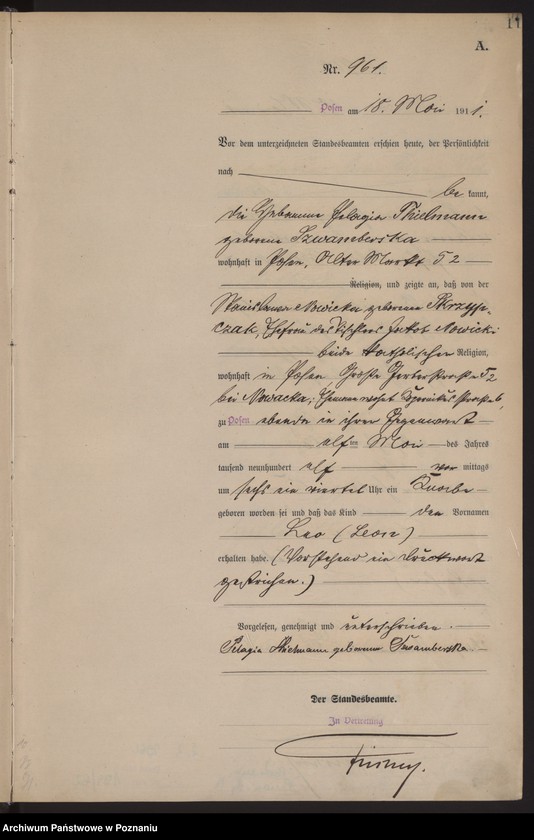 17
A.
Nr. 961.
Posen am 18. Mai 1911.
Vor dem unterzeichneten Standesbeamten erschien heute, der Persönlichkeit
nach
be kannt,
die Hebamme Pelagia Thielmann
geborene Szwamberska
wohnhaft in Posen, Alter Markt 52
Religion, und zeigte an, daß von der
Stanislawa Nowicka geborene Skrzyp-
czak, Ehefrau des Tischlers Jakob Nowicki
beide katholischer Religion,
wohnhaft in Posen Große Gerberstraße 52
bei Nowacka, Ehemann wohnt
zu Posen ebenda in ihrer Gegenwart
am elf ten Mai des Jahres
tausend neunhundert elf vor mittags
um sechs ein viertel Uhr ein Knabe
geboren worden sei und daß das Kind den Vornamen
Leo (Leon)
erhalten habe. (Vorstehend ein Druckwort
gestrichen.)
Vorgelesen, genehmigt und unterschrieben.
Pelagia Thielmann geborene Szwamberska
Der Standesbeamte.
In Vertretung
Archiwum Państwowe w Poznaniu